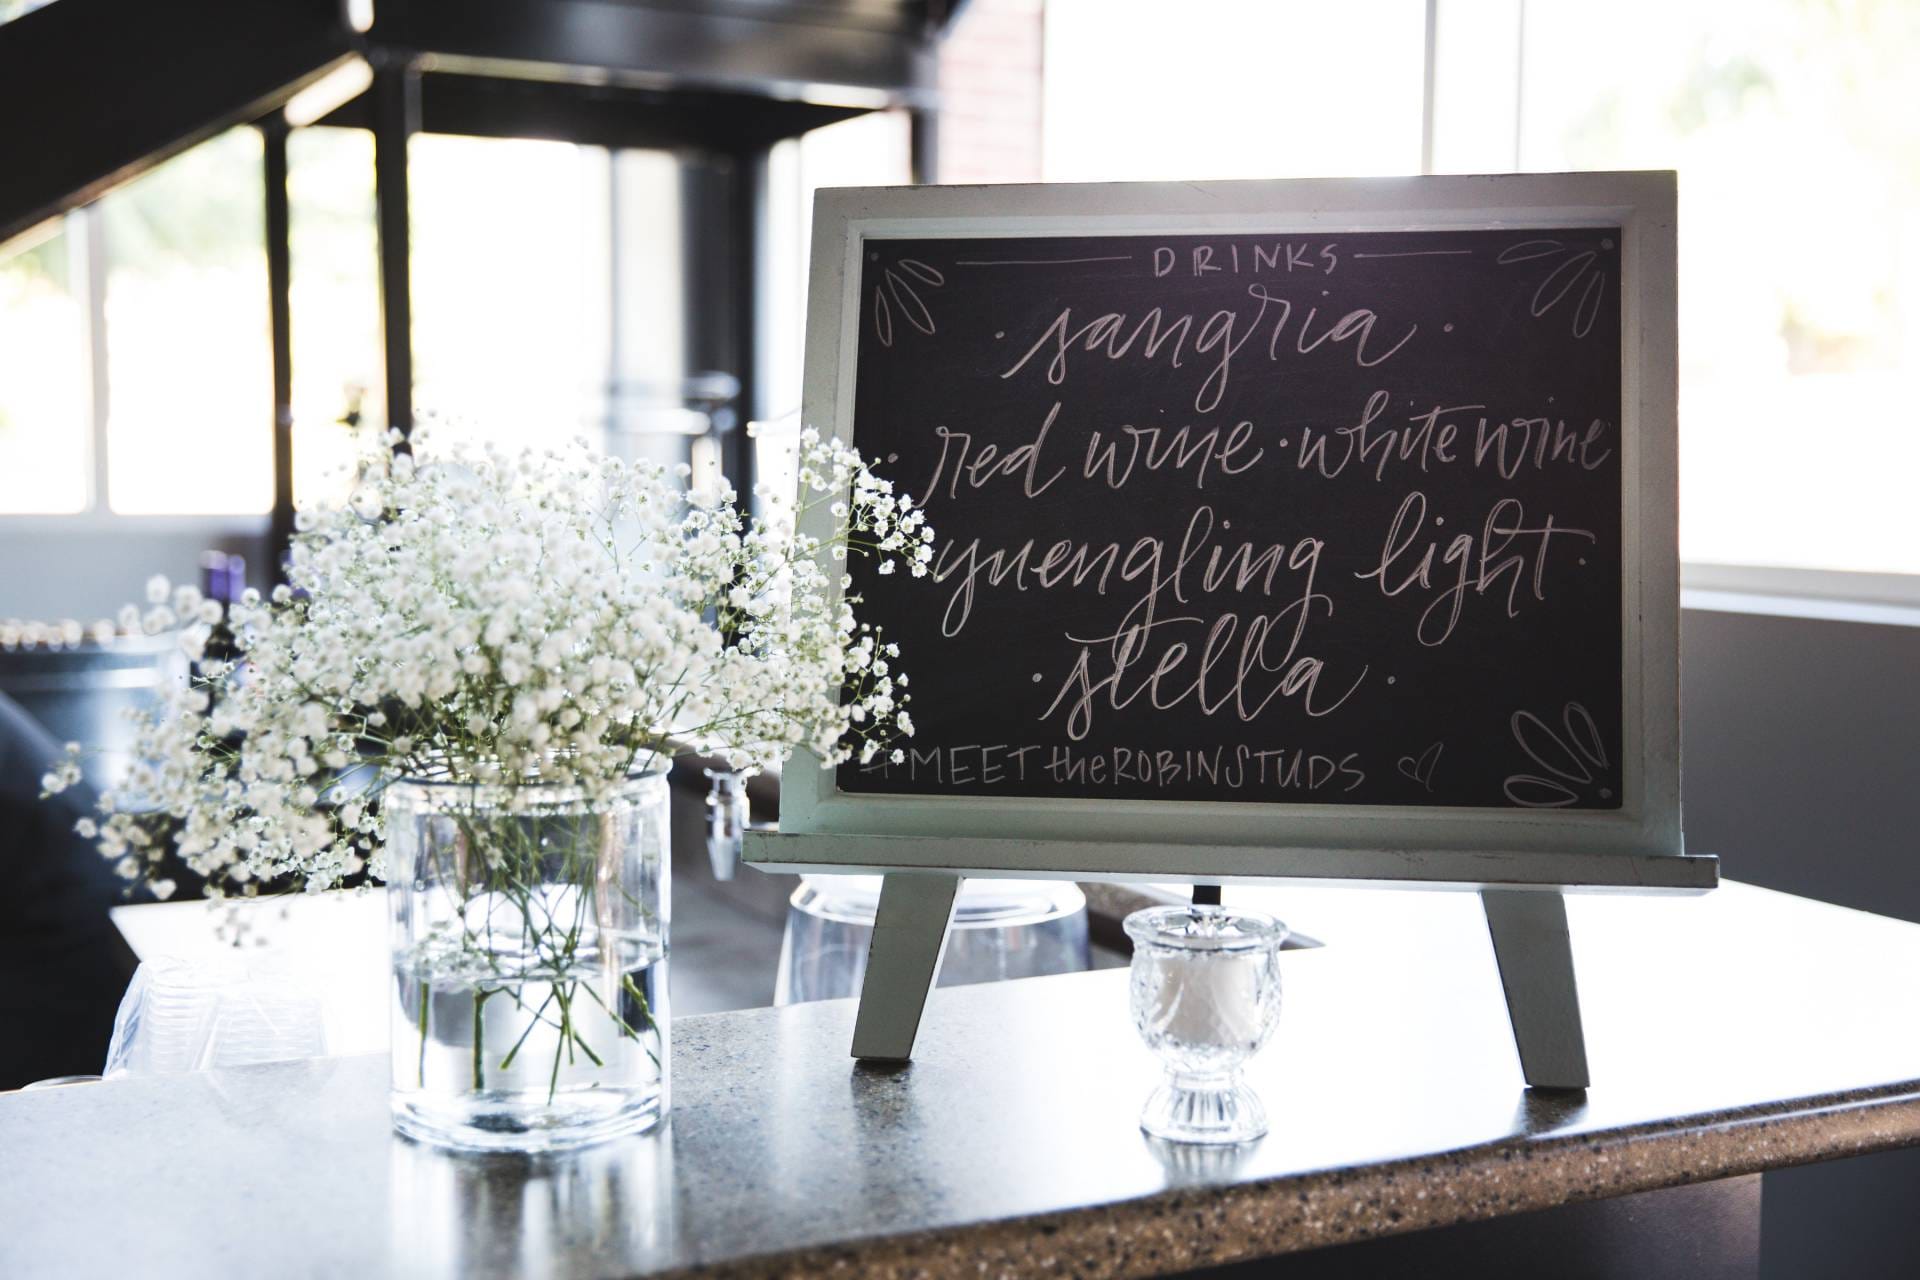 DRINKS
· sangria ·
· red wine · white wine
yuengling light ·
· stella ·
#MEET theROBINSTUDS